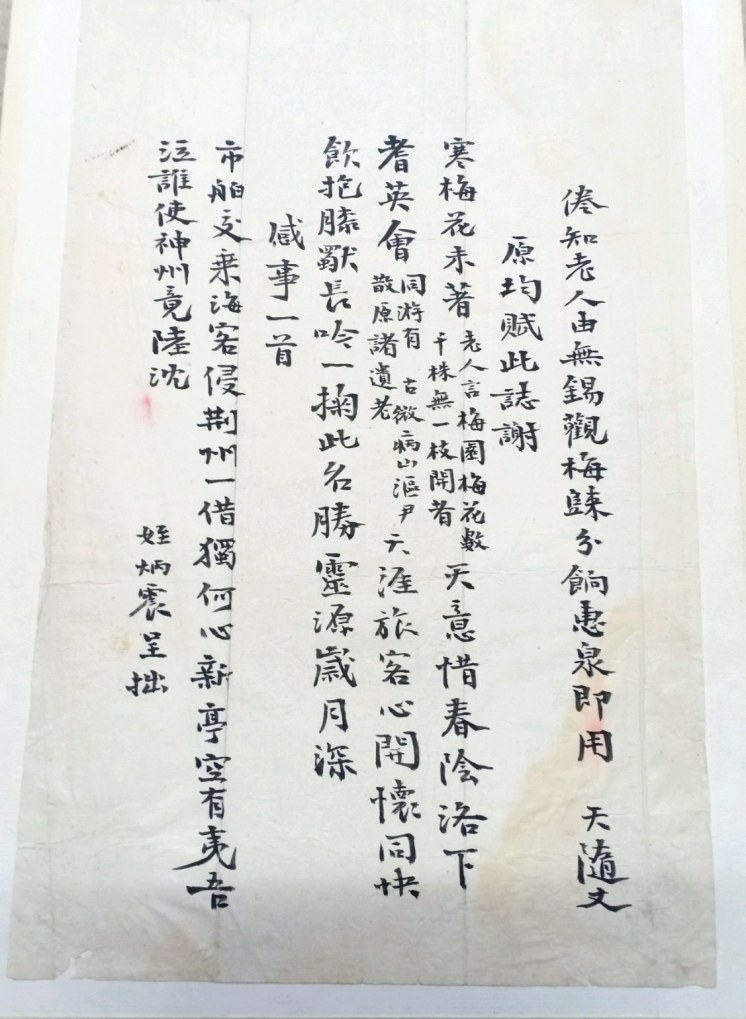 倦知老人由無錫觀梅歸分餉惠泉即用 天隨丈
原均賦此誌謝
寒梅花未著
老人言梅園梅花數
千株無一枝開者
天意惜春陰洛下
耆英會
同游有 古微病山漚尹
散原諸遺老
天涯旅客心開懷同快
飲抱膝獨長吟一掬此名勝靈源歲月深
感事一首
市舶交乘海客侵荊州一借獨何心新亭空有夷吾
泣誰使神州竟陸沈
姪炳震呈拙